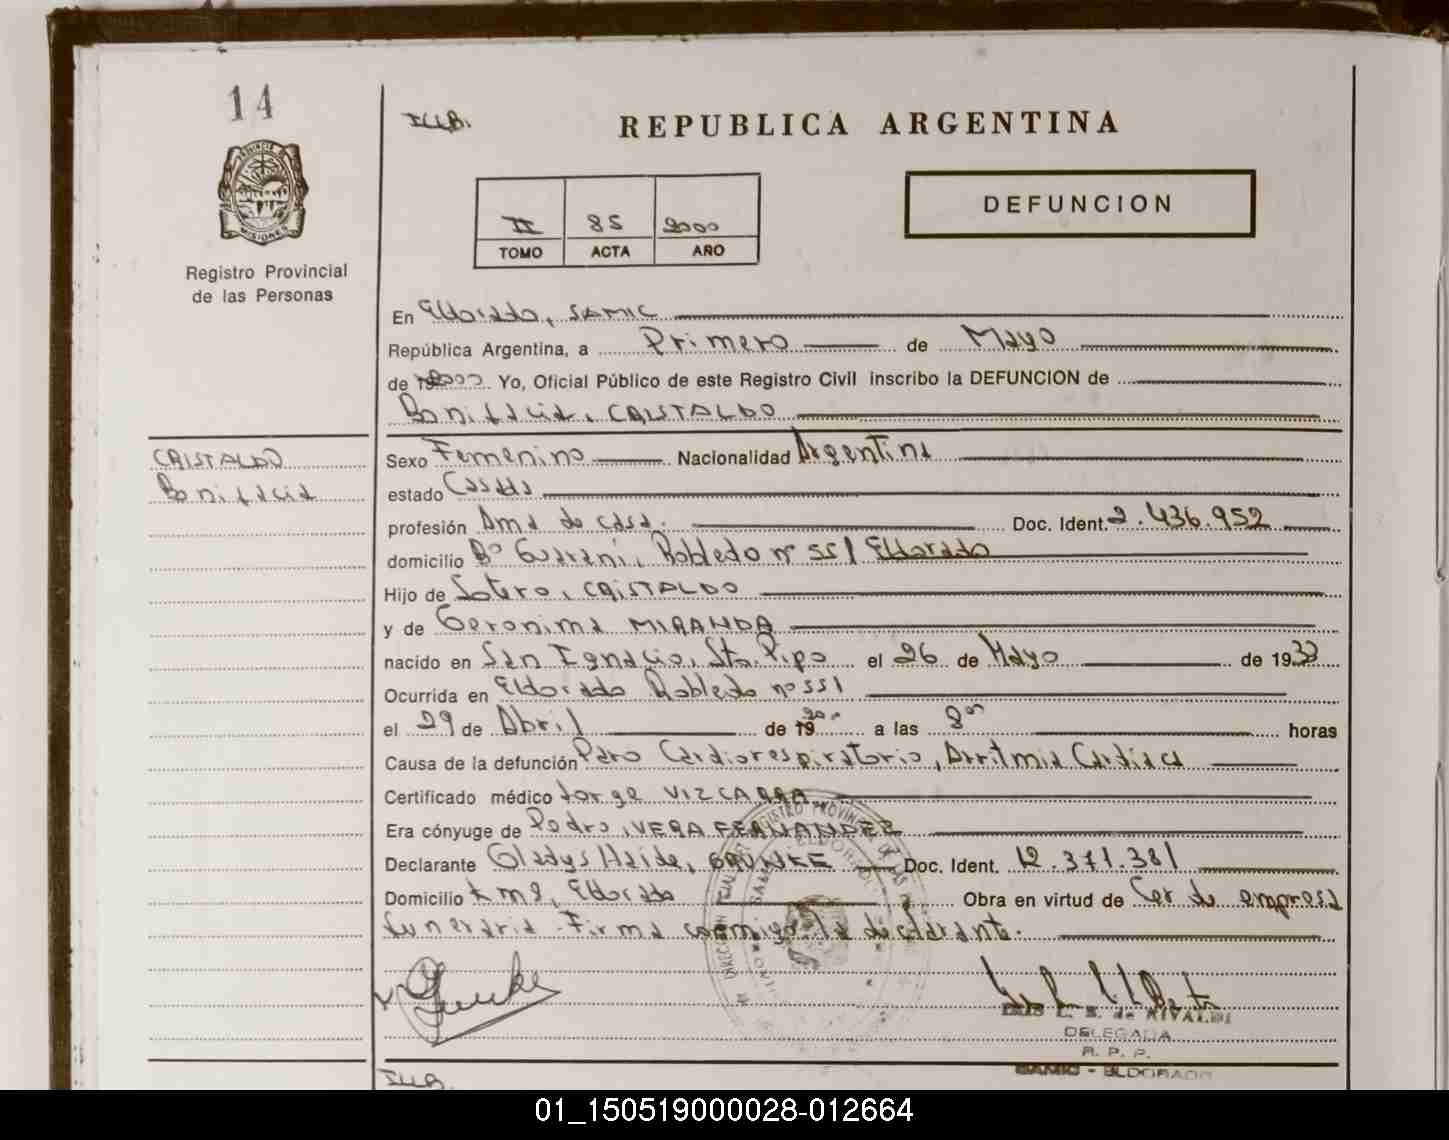 14
REPUBLICA ARGENTINA
PROVINCIA DE
MISIONES
Registro Provincial
de las Personas
II 85 2000
TOMO ACTA AÑO
DEFUNCION
En Eldorado, SAMIC
República Argentina, a Primero de Mayo
de 2000 Yo, Oficial Público de este Registro Civil inscribo la DEFUNCION de
Bonifacia, CRISTALDO
CRISTALDO
Bonifacia
Sexo Femenino Nacionalidad Argentina
estado Casada
profesión Ama de casa. Doc. Ident. 2.436.952
domicilio Bº Guarani, Robledo nº 551 Eldorado
Hijo de Sotero, CRISTALDO
y de Geronima MIRANDA
nacido en San Ignacio, Sta. Pipo el 26 de Mayo de 1933
Ocurrida en Eldorado Robledo nº 551
el 29 de Abril de 2000 a las 8ºº horas
Causa de la defunción Paro Cardiorespiratorio, Arritmia Cardiaca
Certificado médico Jorge VIZCARRA
Era cónyuge de Pedro, VERA FERNANDEZ
Declarante Gladys Haide, GRUNKE Doc. Ident. 12.371.381
Domicilio Km 8, Eldorado Obra en virtud de Cer de empresa
funeraria - Firma conmigo la declarante.
DELEGADA
R. P. P.
SAMIC - ELDORADO
01_150519000028-012664